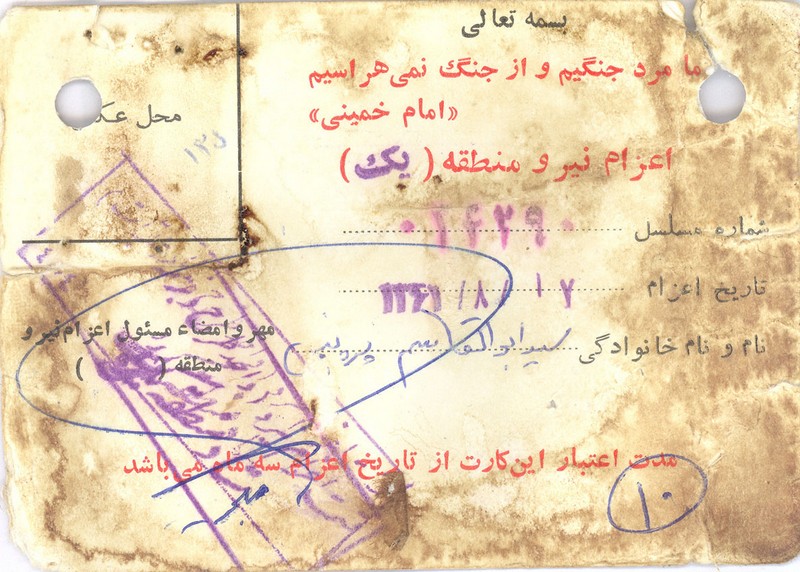 بسمه تعالی
ما مرد جنگیم و از جنگ نمی‌هراسیم
«امام خمینی»
اعزام نیرو منطقه (یک)
محل عکس
شماره مسلسل ۰۱۶۲۹۰
تاریخ اعزام ۱۷/۸/۱۳۶۱
نام و نام خانوادگی سید ابوالقاسم
مهر و امضاء مسئول اعزام نیرو
منطقه ( )
مدت اعتبار این‌کارت از تاریخ اعزام سه ماه می‌باشد
۱۰